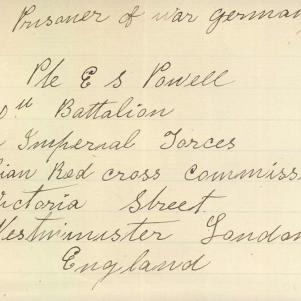 Prisoner of war German
Pte E S Powell
0th Battalion
Imperial Forces
ian Red cross commiss
ictoria Street
Westminster London
England